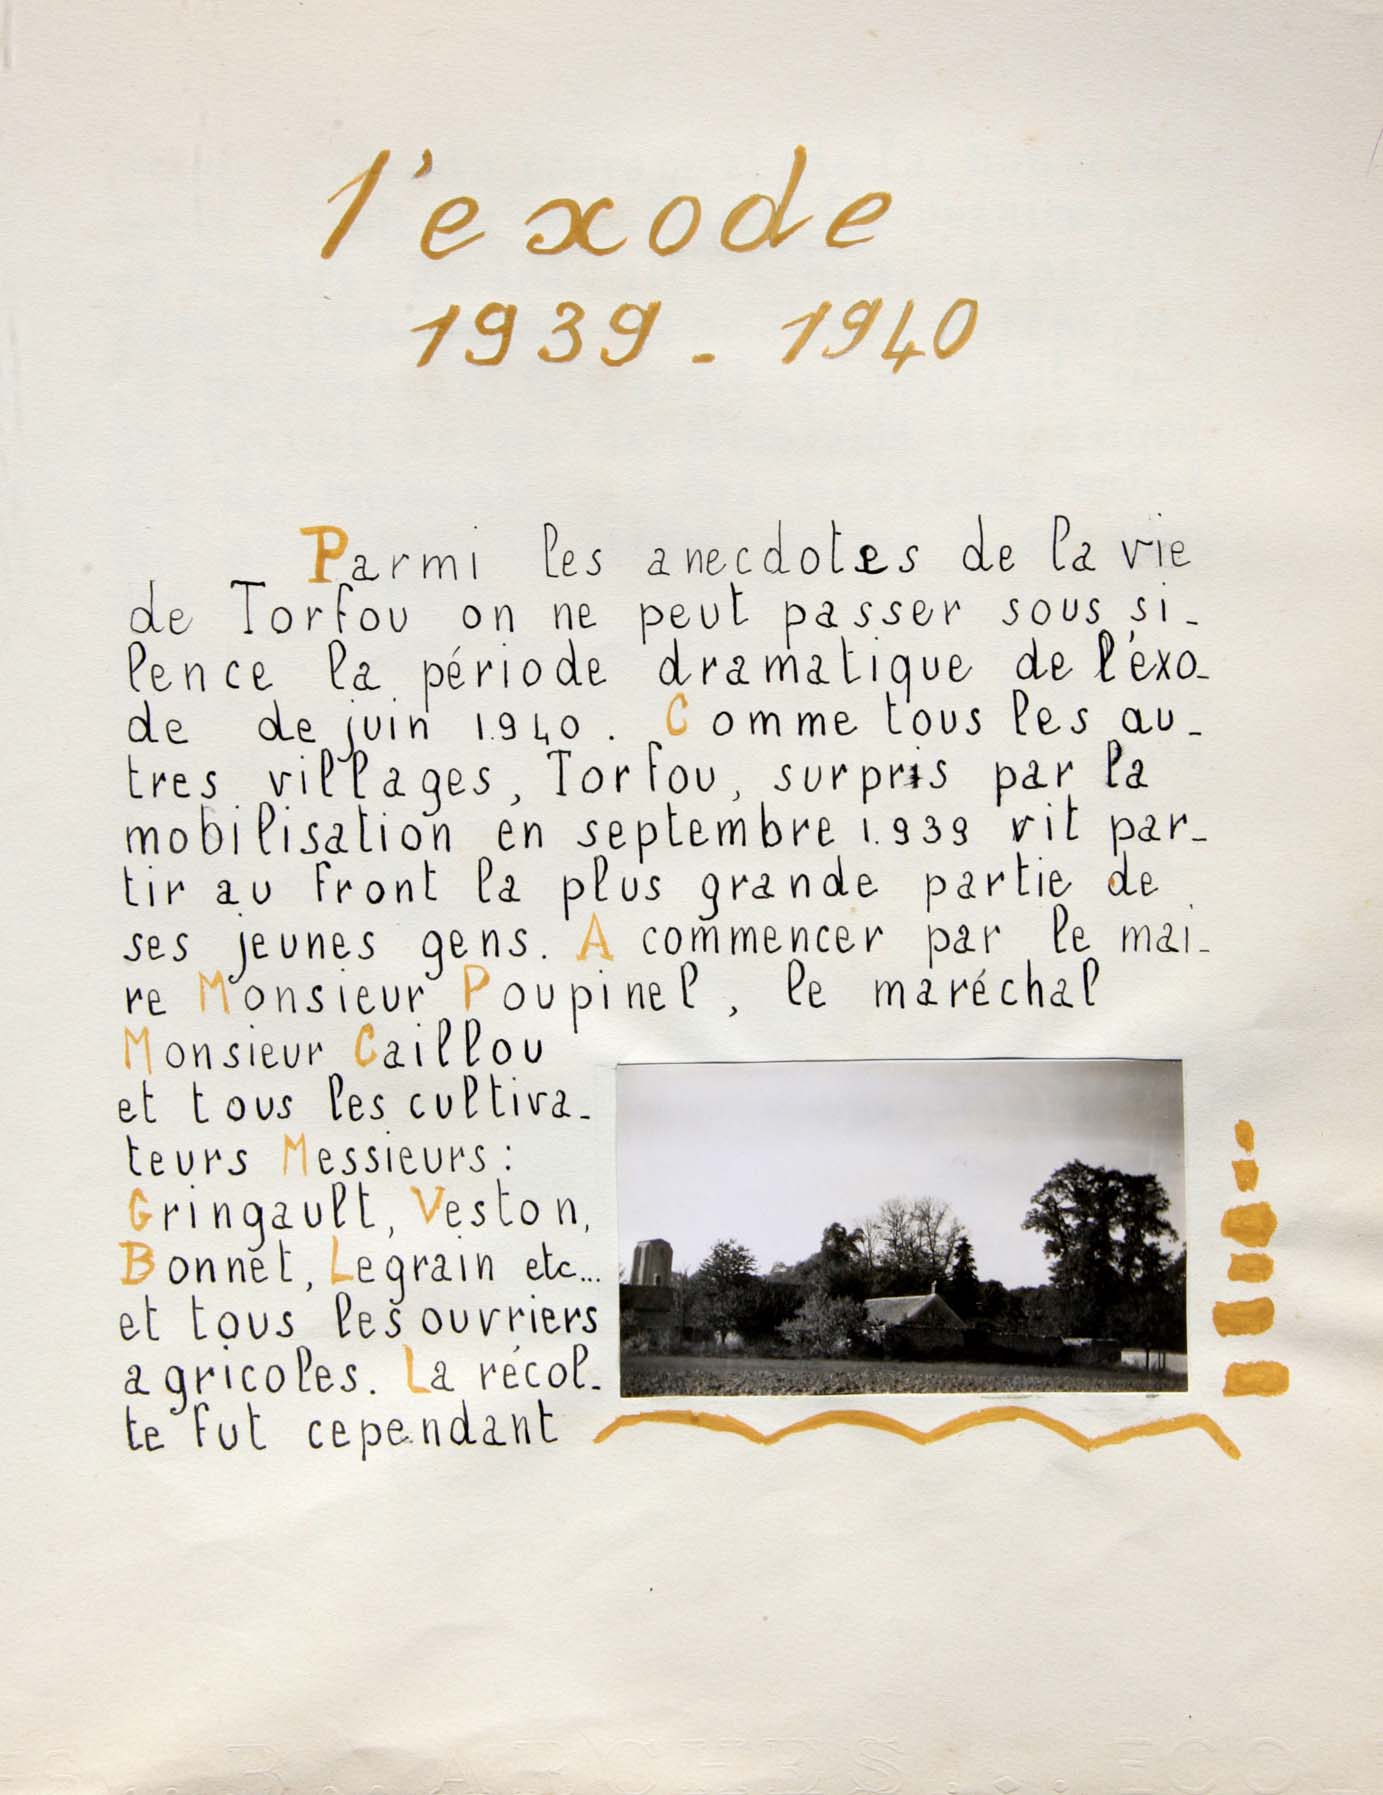 l'exode
1939 - 1940
Parmi les anecdotes de la vie
de Torfou on ne peut passer sous si-
lence la période dramatique de l'exo-
de de juin 1.940. Comme tous les au-
tres villages, Torfou, surpris par la
mobilisation en septembre 1.939 vit par-
tir au front la plus grande partie de
ses jeunes gens. A commencer par le mai-
re Monsieur Poupinel, le maréchal
Monsieur Caillou
et tous les cultiva-
teurs Messieurs :
Gringault, Veston,
Bonnet, Legrain etc...
et tous les ouvriers
agricoles. La récol-
te fut cependant